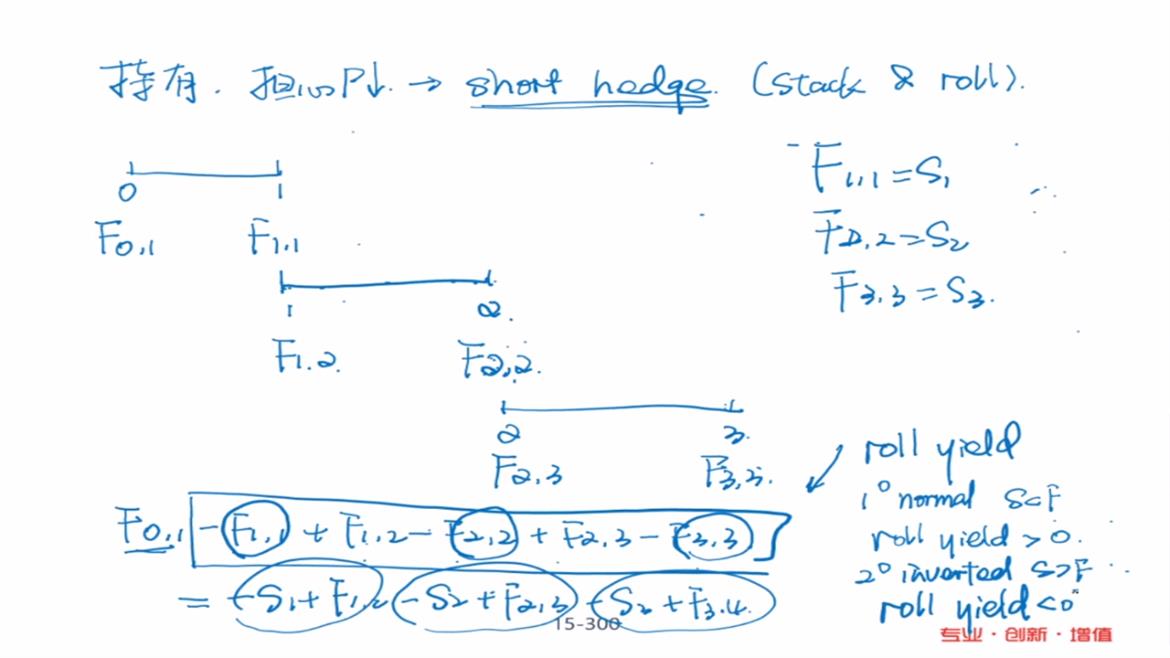 持有. 担心P↓. → short hedge. (stack & roll).
0 1
F0,1 F1,1
1 2.
F1.2 F2,2.
2 3.
F2,3 F3,3.
F1,1=S1
F2,2=S2
F3,3=S3.
roll yield
1° normal S<F
roll yield > 0.
2° inverted S>F
roll yield <0
F0,1 -F1,1 + F1,2 - F2,2 + F2,3 - F3,3
= -S1+F1,2 -S2+F2,3 -S3+F3.4.
15-300
专业·创新·增值